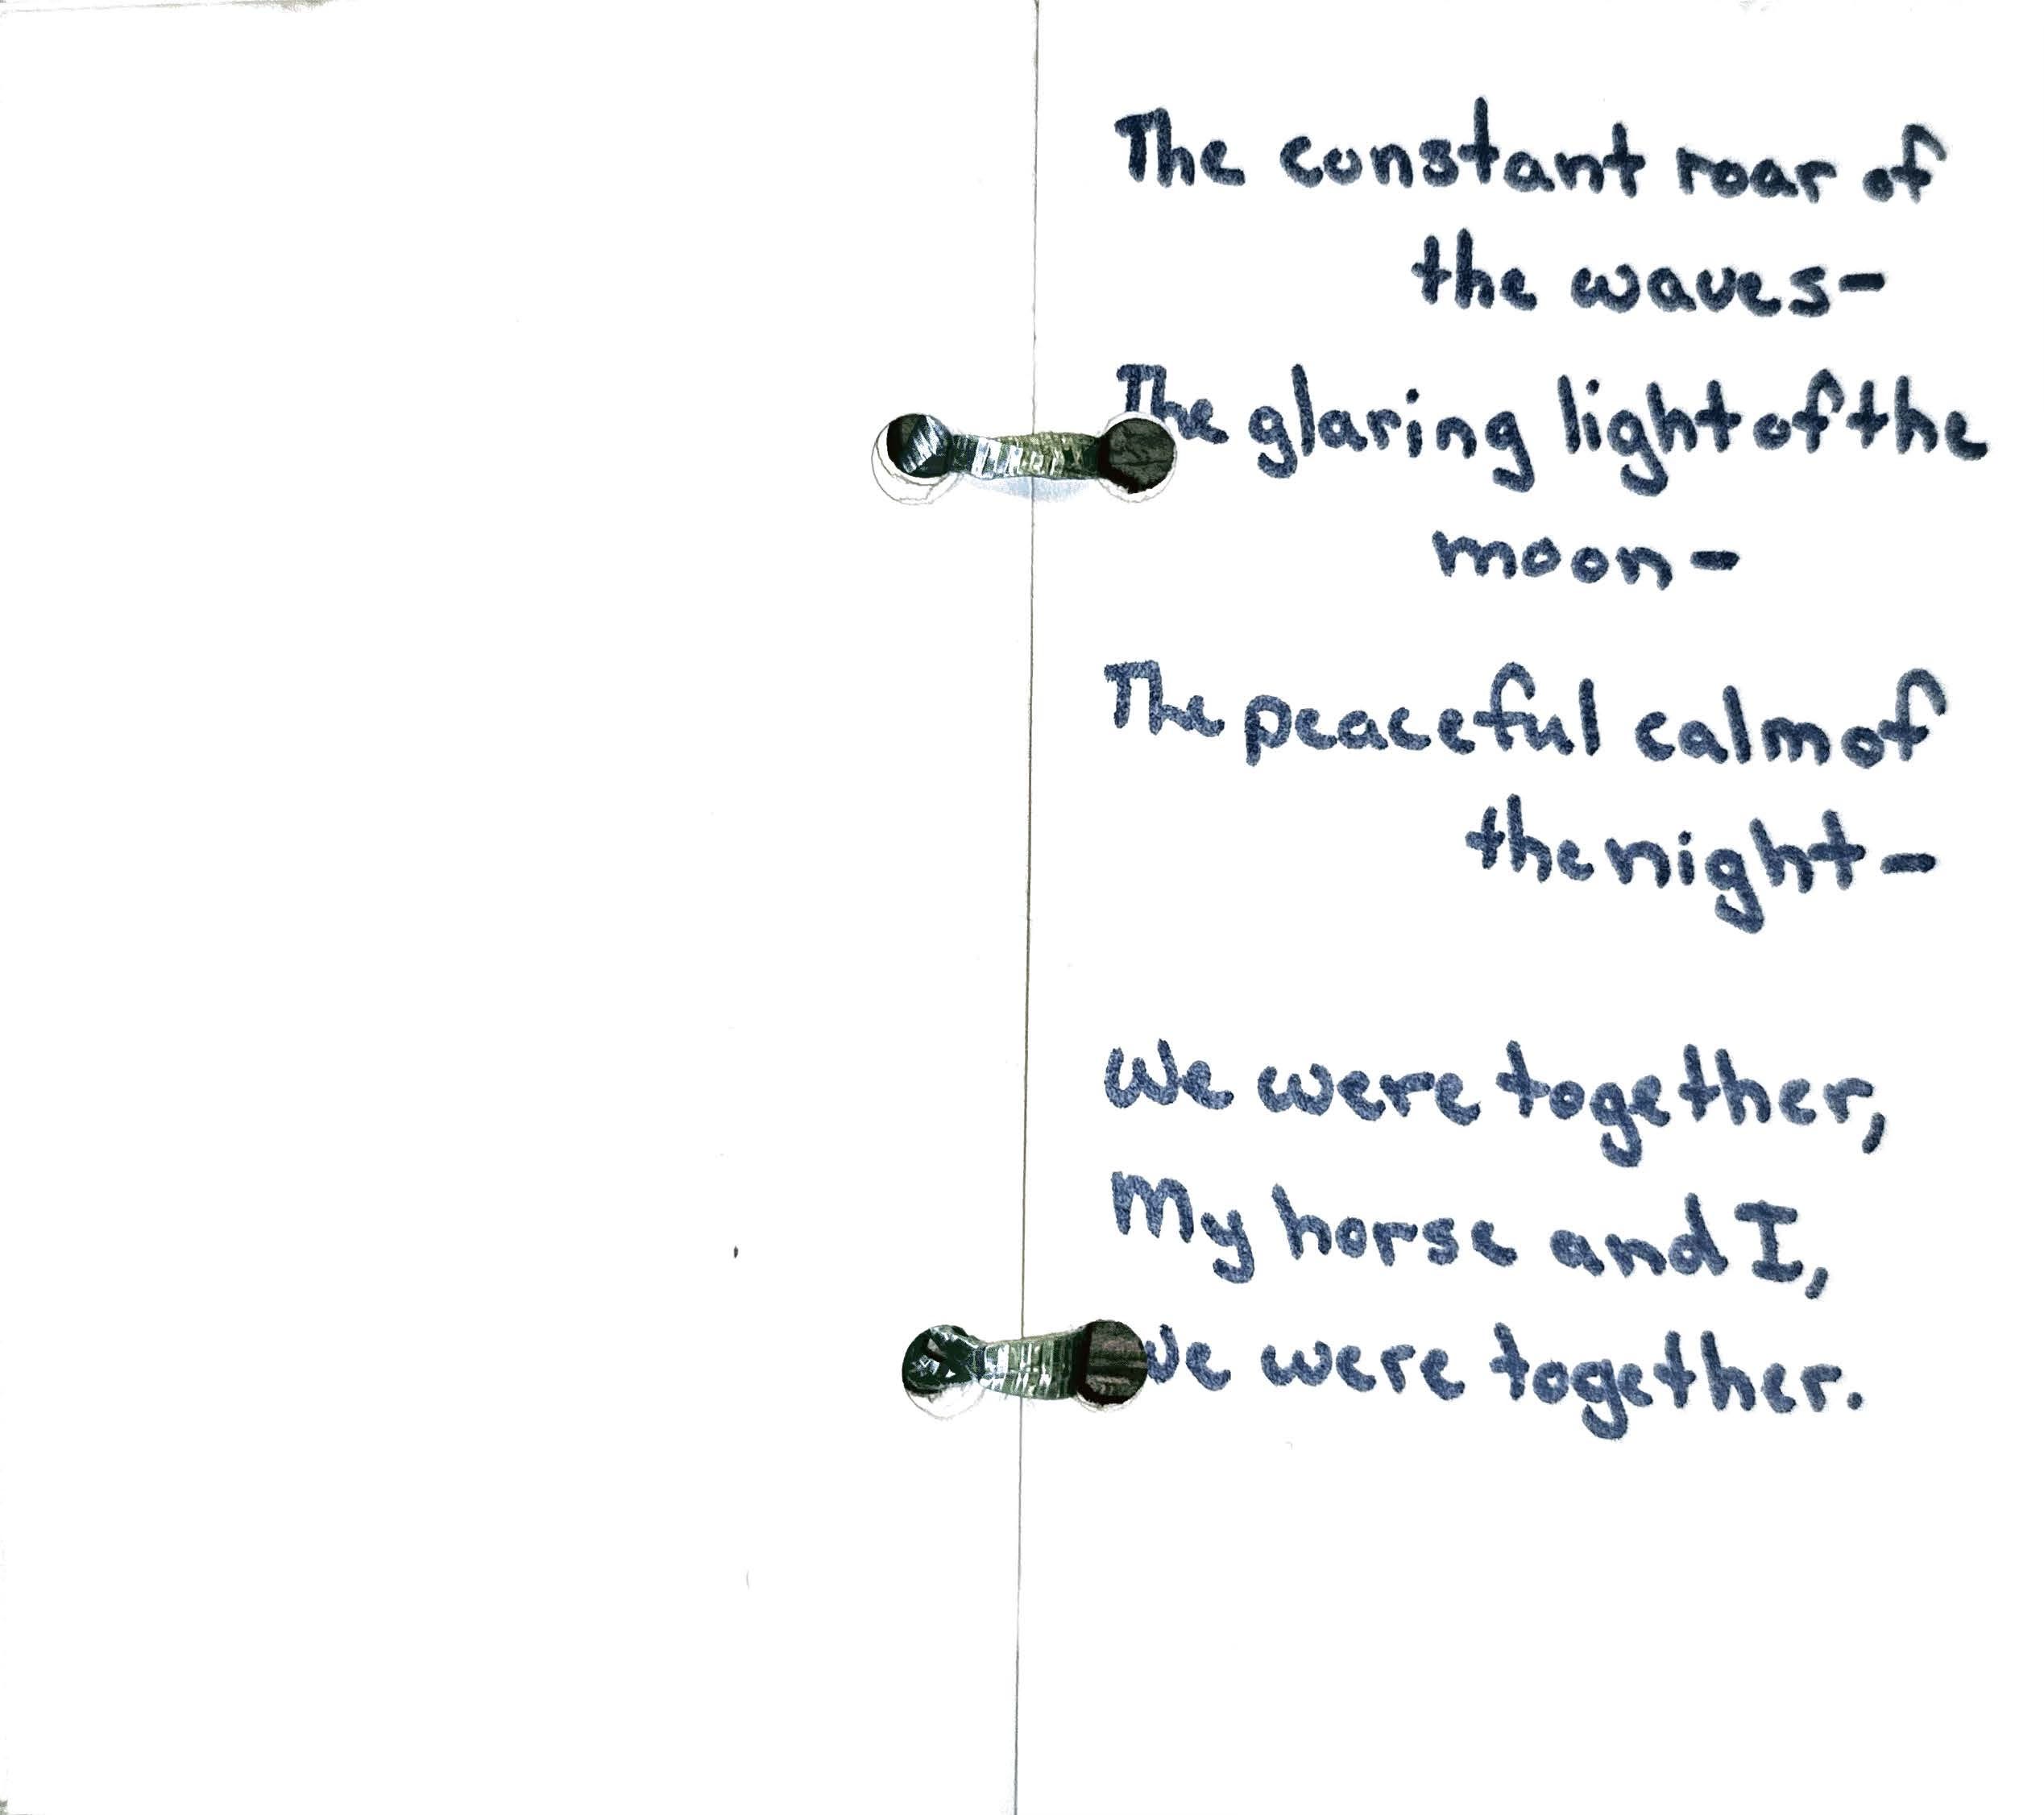 The constant roar of
the waves-
The glaring light of the
moon-
The peaceful calm of
the night-
We were together,
My horse and I,
We were together.